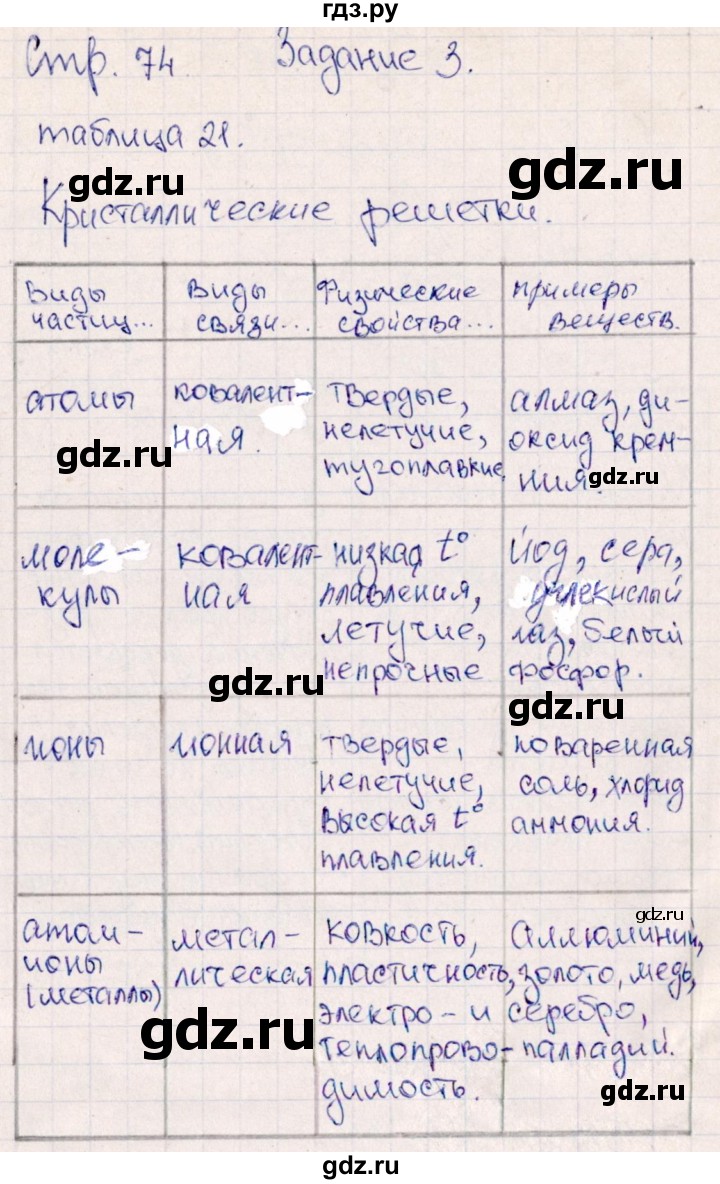 гдз.ру
Стр. 74 Задание 3.
таблица 21.
gdz.ru
gdz.ru
Кристаллические решетки.
Виды частиц...
Виды связи...
Физические свойства...
примеры веществ.
атомы
ковалент-
ная.
твердые,
нелетучие,
тугоплавкие
алмаз, ди-
оксид крем-
ния.
gdz.ru
gdz.ru
моле-
кулы
ковалент-
ная
низкая t°
плавления,
летучие,
непрочные
йод, сера,
углекислый
газ, белый
фосфор.
gdz.ru
gdz.ru
ионы
ионная
твердые,
нелетучие,
высокая t°
плавления.
поваренная
соль, хлорид
аммония.
gdz.ru
атом-
ионы
(металлы)
метал-
лическая
ковкость,
пластичность,
электро- и
теплопрово-
димость.
Аллюминий,
золото, медь,
серебро,
палладий.
gdz.ru
gdz.ru
gdz.ru